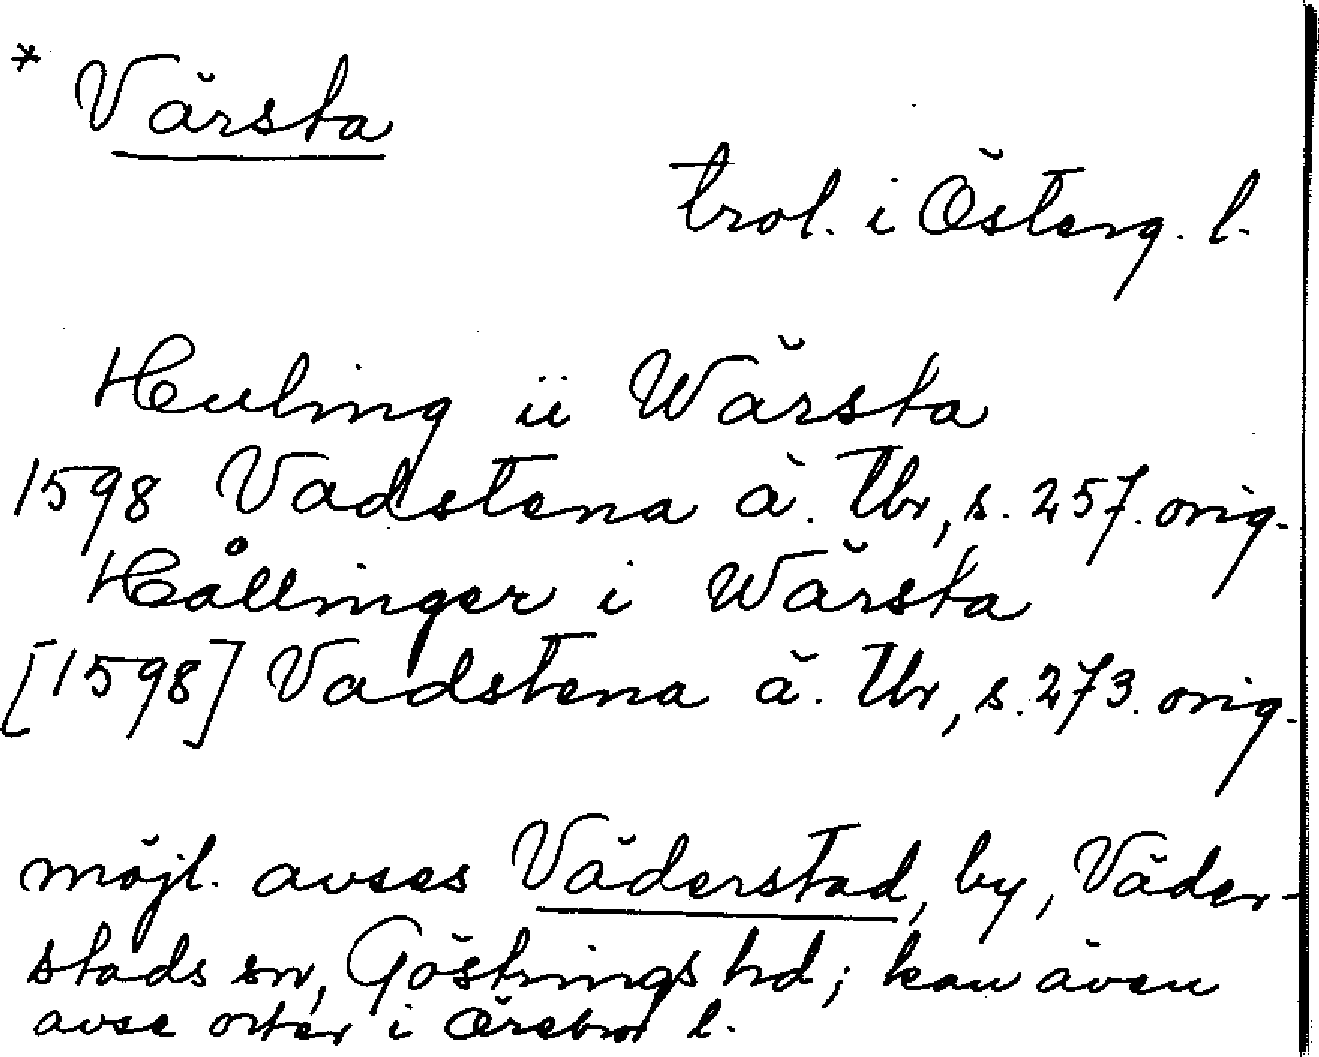 * Värsta
trol. i Österg. l.
Huling ii Wärsta
1598 Vadstena ä. Tbr, s. 257. orig.
Hållinger i Wärsta
[1598] Vadstena ä. Tbr, s. 273. orig.
möjl. avses Väderstad, by, Väder-
stads sn, Göstrings hd; kan även
avse orter i Örebro l.